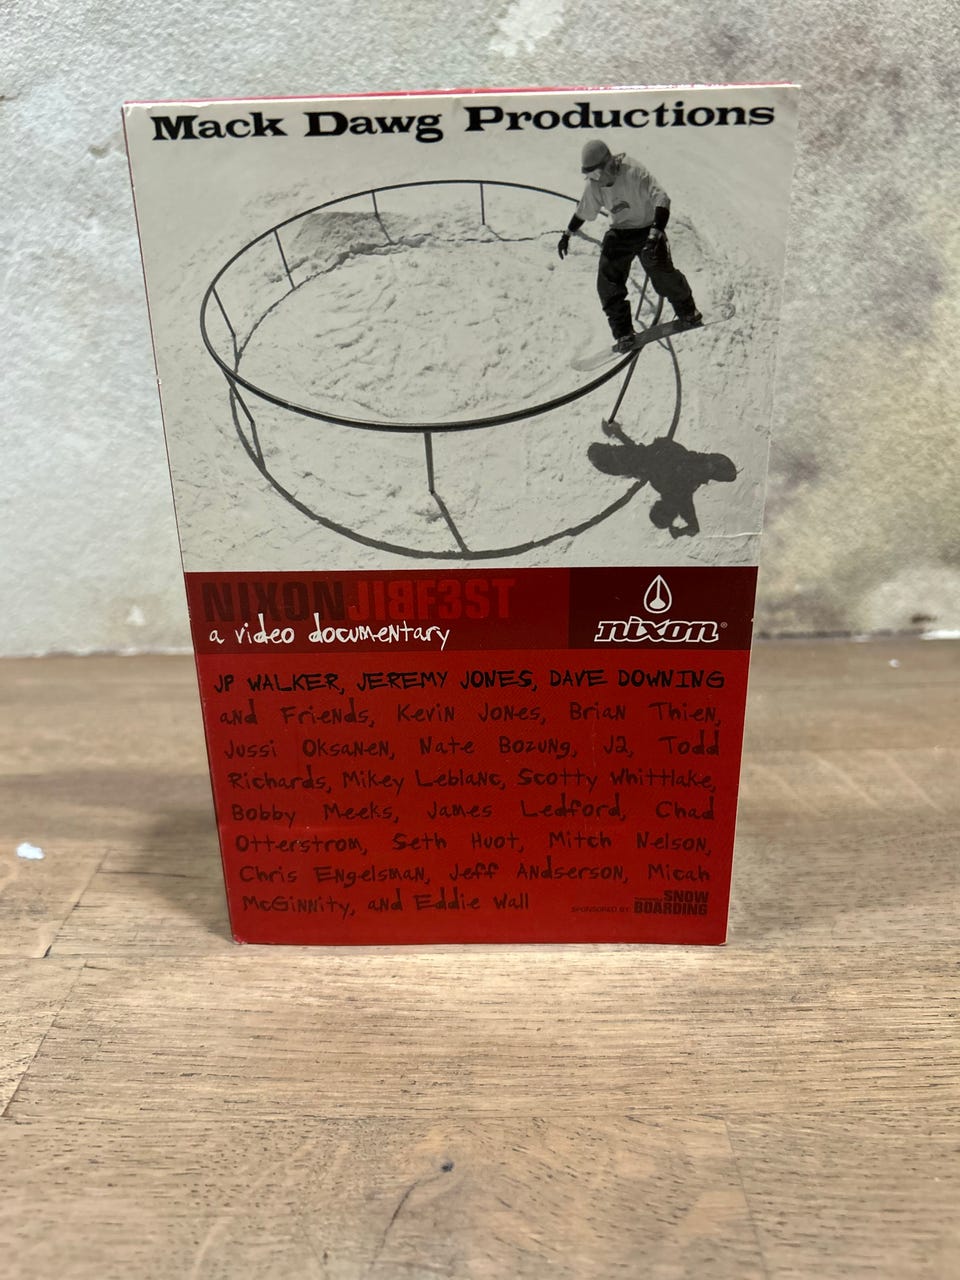 Mack Dawg Productions
NIXONJIBF3ST
a video documentary
nixon®
JP WALKER, JEREMY JONES, DAVE DOWNING
and Friends, Kevin Jones, Brian Thien,
Jussi Oksanen, Nate Bozung, J2, Todd
Richards, Mikey Leblanc, Scotty Whittlake,
Bobby Meeks, James Ledford, Chad
Otterstrom, Seth Huot, Mitch Nelson,
Chris Engelsman, Jeff Andserson, Micah
McGinnity, and Eddie Wall
SPONSORED BY: SNOW
BOARDING